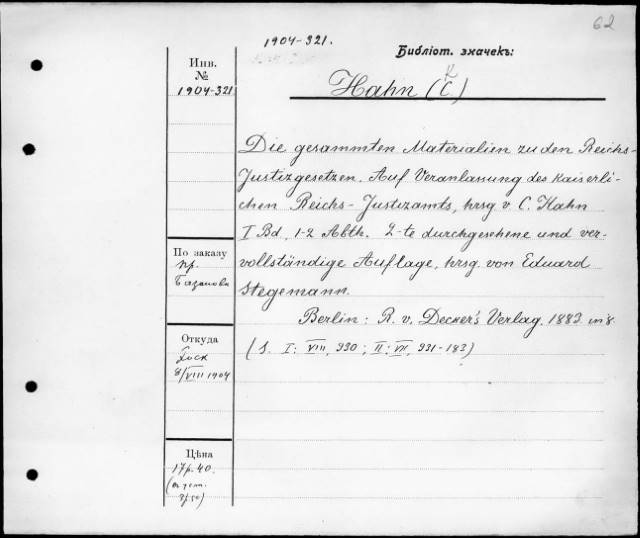 62
1904-321.
Библіот. значекъ:
Инв.
№
1904-321
Hahn (C.)
Die gesammten Materialien zu den Reichs-
Justizgesetzen. Auf Veranlassung des Kaiserli-
chen Reichs-Justizamts, hrsg v C. Hahn
I Bd, 1-2 Abth. 2-te durchgesehene und ver-
vollständige Auflage, hrsg. von Eduard
Stegemann.
Berlin: R. v. Decker's Verlag. 1883. in 8.
(S. I: VIII, 930; II: VII, 931-
По заказу
пр.
Откуда
8/VIII 1904
Цѣна
17р. 40.